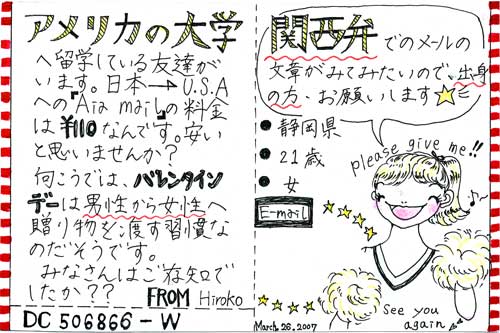 アメリカの大学
へ留学している友達が
います。日本→U.S.A
への「Air mail」の料金
は¥110なんです。安い
と思いませんか?
向こうでは、バレンタイン
デーは男性から女性へ
贈り物を渡す習慣な
のだそうです。
みなさんはご存知で
したか??
FROM Hiroko
DC 506866-W
関西弁でのメールの
文章がみてみたいので、出身
の方、お願いします
please give me!!
静岡県
21歳
女
E-mail
See you
again
March 26. 2007